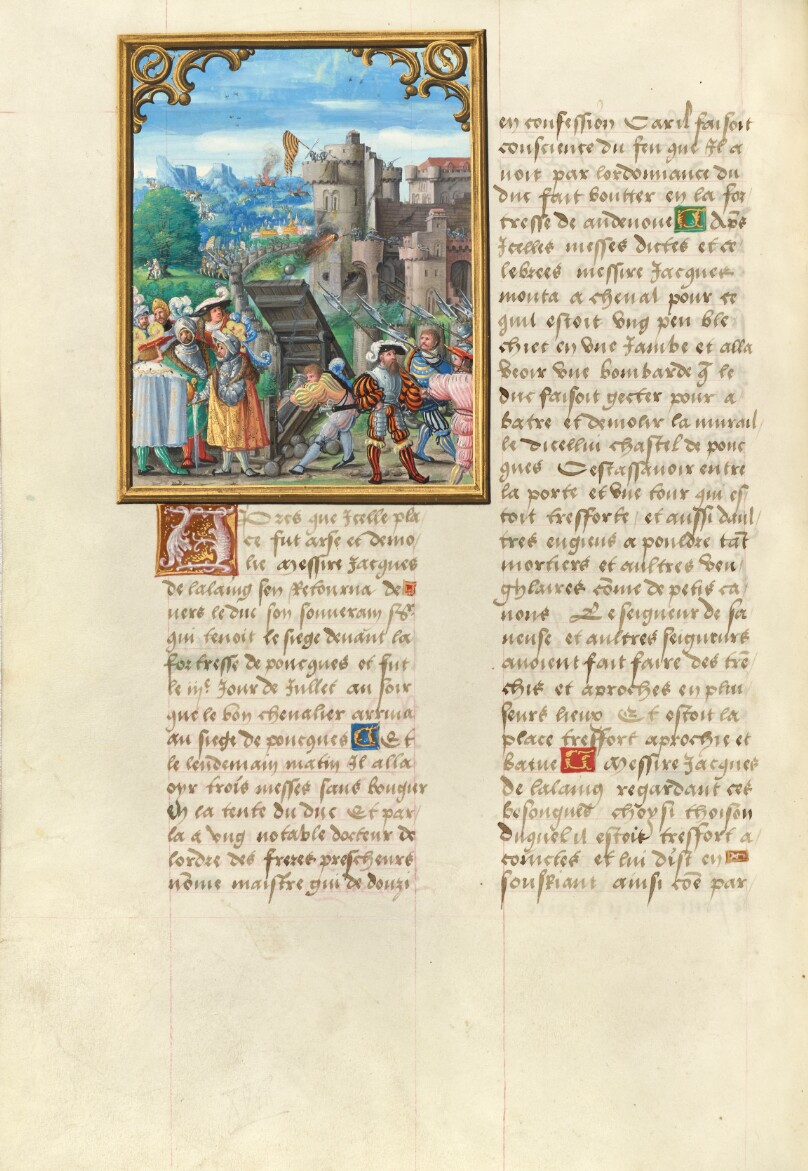 Apres que Icelle pla
ce fut arse et demo/
lie Messire Jacques
de lalaing son Retourna de
uers le duc son souuerain sgr
qui tenoit le siege deuant la
fortresse de poucques et fut
le iije Jour de Jullet au soir
que le bon cheualier arriua
au siege de poucques Et
le lendemain matin Il alla
oyr trois messes sans bougier
en la tente du duc Et par
la a vng notable docteur de
lordre des freres prescheurs
nōme maistre gui de douzi
en confession Car il faisoit
conscience du feu que Il a
uoit par lordonnance du
duc fait boutter en la for
tresse de audenoue Aps
Icelles messes dictes et ce
lebrees messire Jacques
monta a cheual pour ce
quil estoit vng peu ble
chiet en vne Jambe et alla
veoir vne bombarde q̄ le
duc faisoit gecter pour a
batre et demolir la murail/
le dicellui chastel de pouc
ques Cestassauoir entre
la porte et vne tour qui es/
toit tresforte / et aussi daul/
tres engiens a pouldre tāt
mortiers et aultres veu/
ghlaires cōme de petis ca/
nons Le seigneur de sa
ueuse et aultres seigneurs
auoient fait faire des trē/
chis et aproches en plui/
seurs lieux Et estoit la
place tresfort aprochie et
batue Messire Jacques
de lalaing regardant ces
besongnes / choysi thoison
duquel il estoit tresfort a/
cointes et lui dist en
soubriant ainsi cōe par/